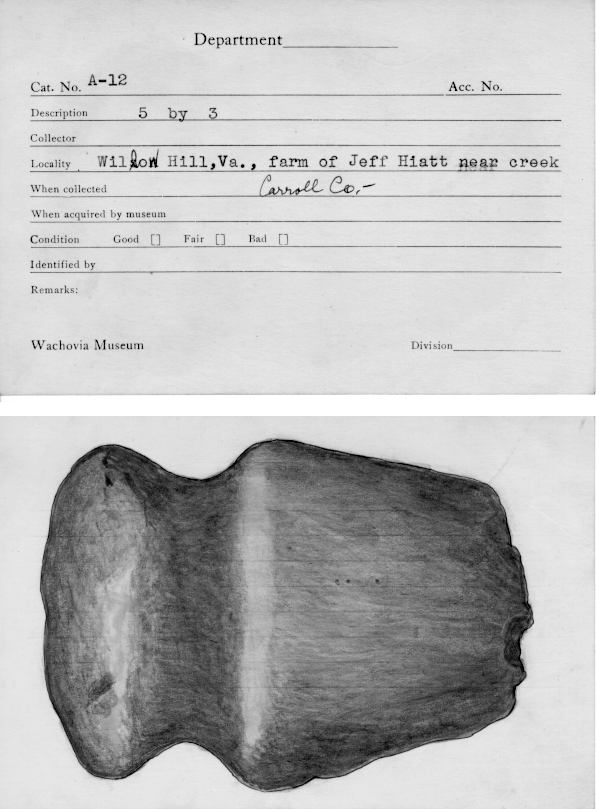 Department
Cat. No. A-12 Acc. No.
Description 5 by 3
Collector
Locality Willow Hill,Va., farm of Jeff Hiatt near creek
When collected Carroll Co.-
When acquired by museum
Condition Good [] Fair [] Bad []
Identified by
Remarks:
Wachovia Museum Division